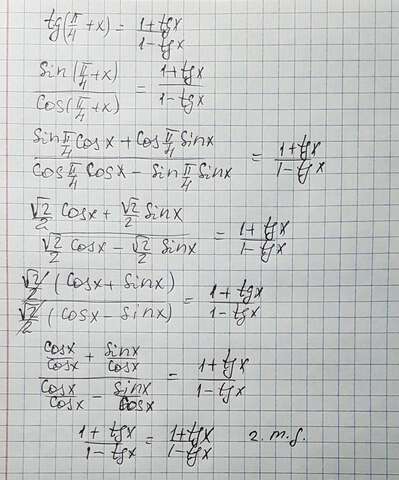 tg(π/4 + x) = (1 + tgx)/(1 - tgx)
sin(π/4 + x)/cos(π/4 + x) = (1 + tgx)/(1 - tgx)
(sin π/4 cosx + cos π/4 sinx)/(cos π/4 cosx - sin π/4 sinx) = (1 + tgx)/(1 - tgx)
(√2/2 cosx + √2/2 sinx)/(√2/2 cosx - √2/2 sinx) = (1 + tgx)/(1 - tgx)
(√2/2 (cosx + sinx))/(√2/2 (cosx - sinx)) = (1 + tgx)/(1 - tgx)
(cosx/cosx + sinx/cosx)/(cosx/cosx - sinx/cosx) = (1 + tgx)/(1 - tgx)
(1 + tgx)/(1 - tgx) = (1 + tgx)/(1 - tgx) г. т. д.